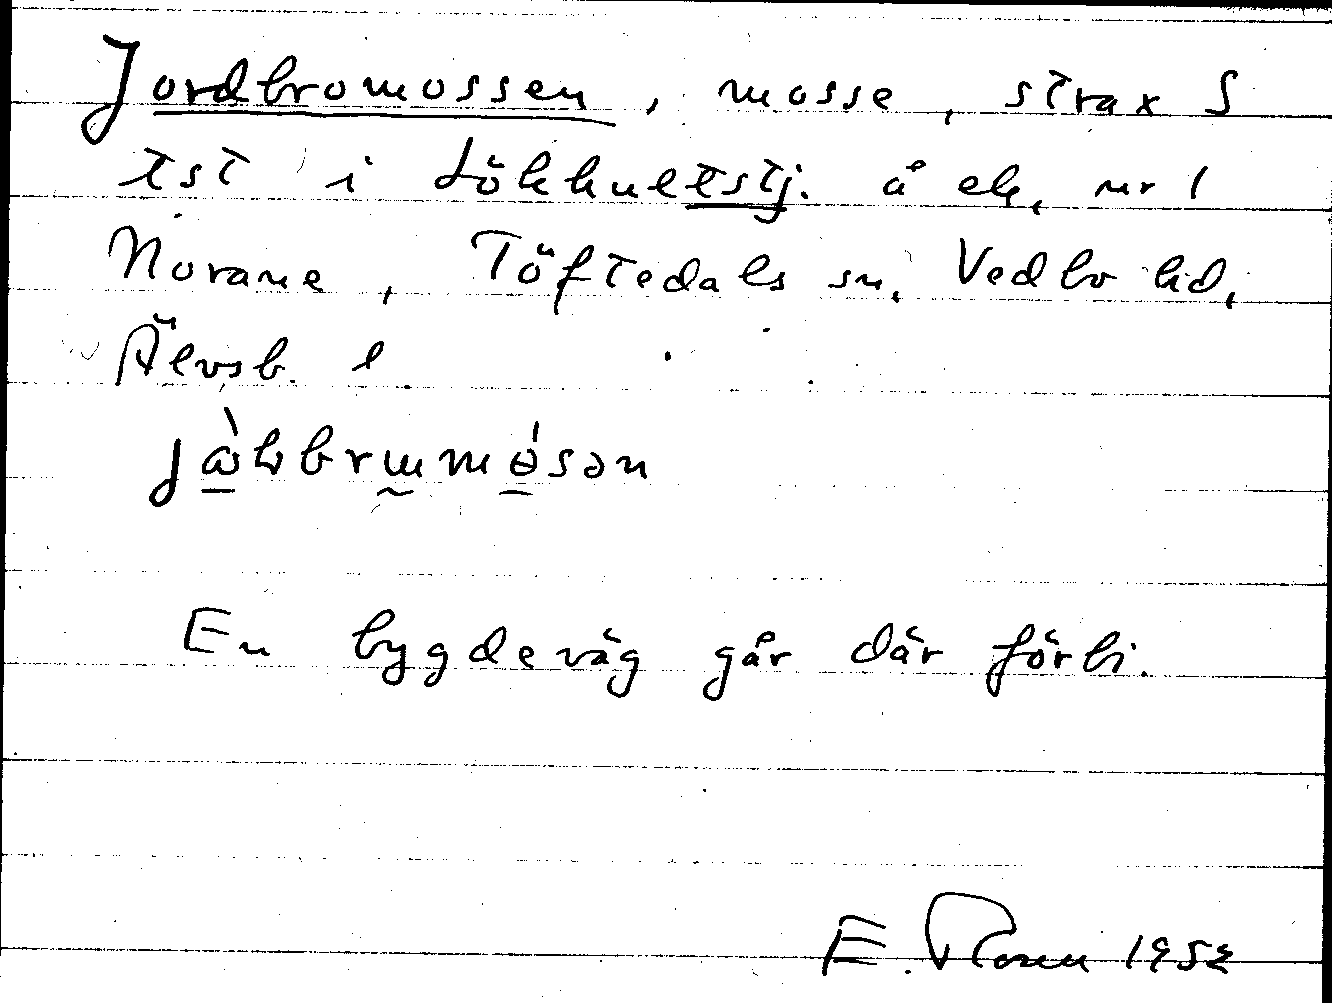 Jordbromossen, mosse, strax S
tst i Lökhultstj. å ek. nr 1
Norane, Töftedals sn, Vedbo hd,
Älvsb. l.
En bygdeväg går där förbi.
E. 1952